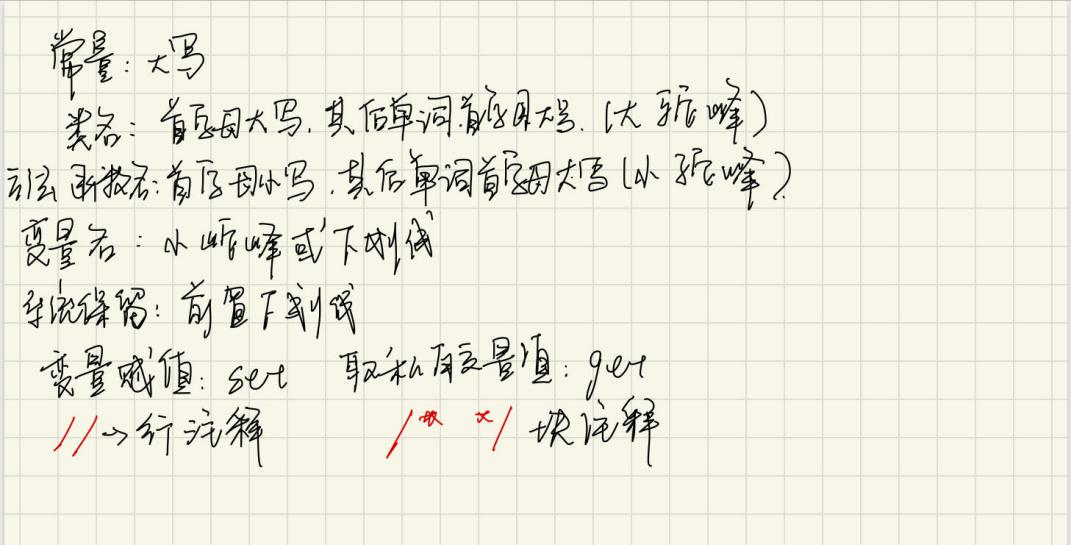 常量：大写
类名：首字母大写，其后单词首字母大写.（大驼峰）
函数名：首字母小写，其后单词首字母大写（小驼峰）
变量名：小驼峰或下划线
系统保留：前置下划线
变量赋值：set 取私有变量值：get
//→行注释 /* */ 块注释